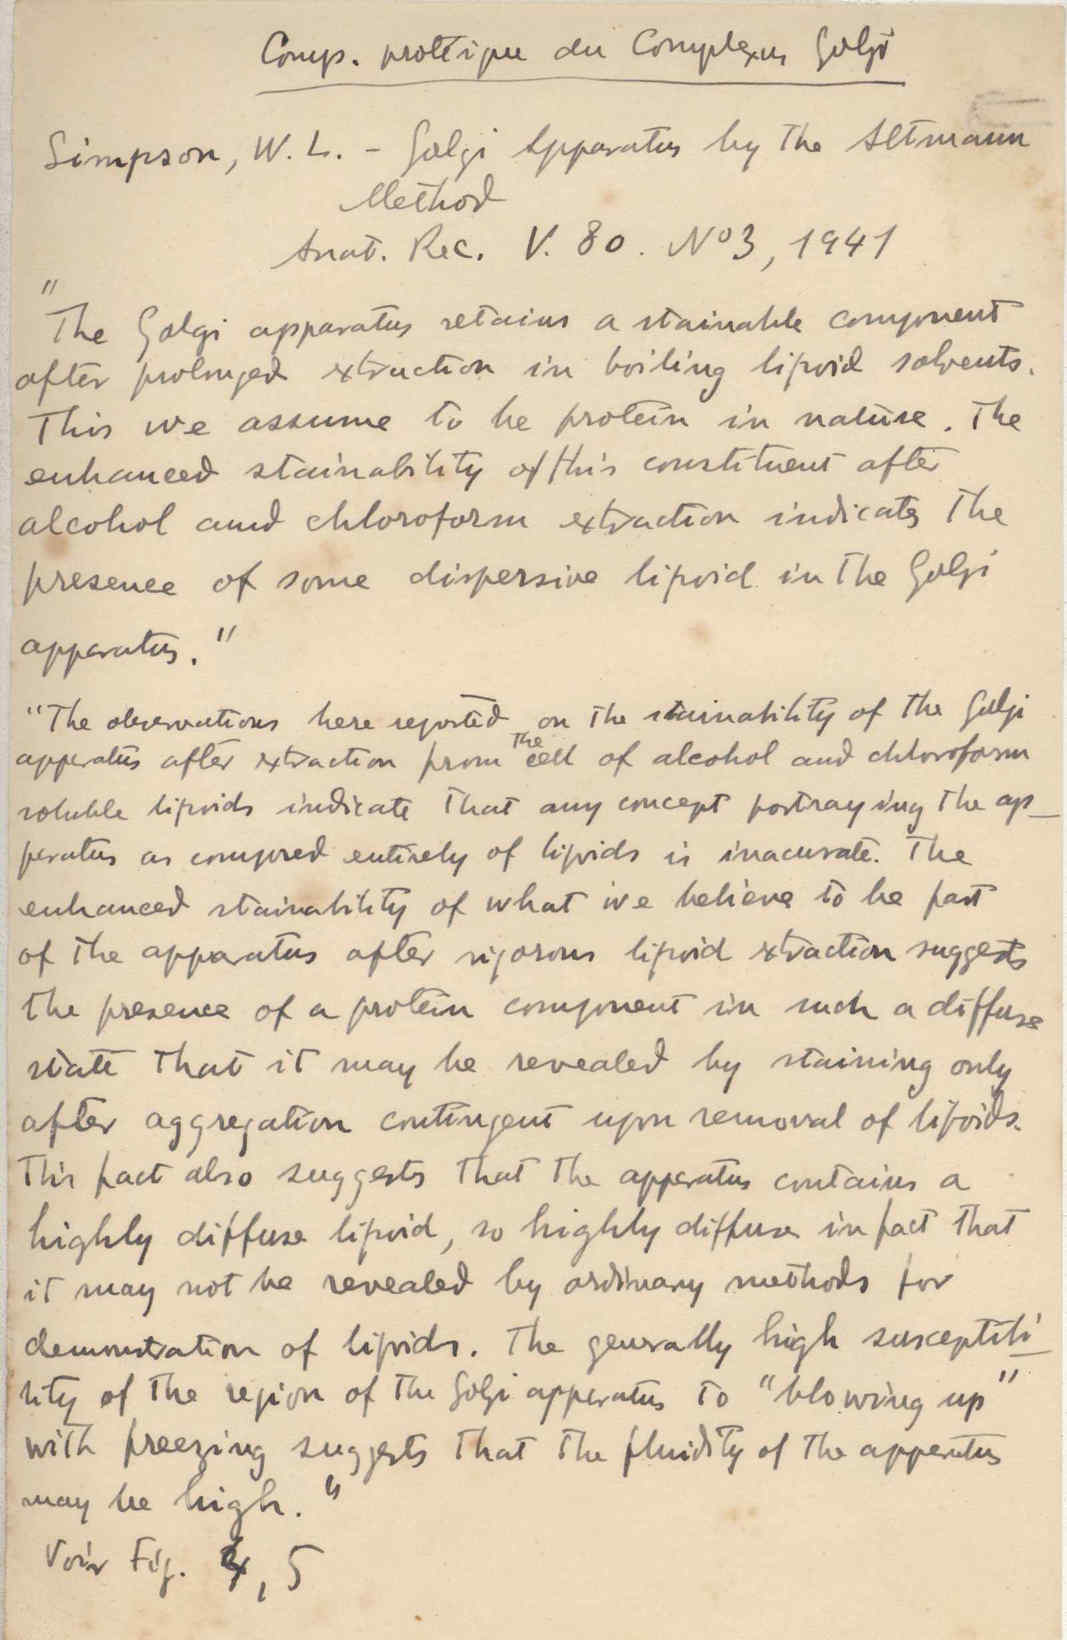 Comp. protéique du Complexus Golgi
Simpson, W. L. - Golgi Apparatus by the Altmann
Method
Anat. Rec. V. 80. No 3, 1941
"The Golgi apparatus retains a stainable component
after prolonged extraction in boiling lipoid solvents.
This we assume to be protein in nature. The
enhanced stainability of this constituent after
alcohol and chloroform extraction indicates the
presence of some dispersive lipoid in the Golgi
apparatus."
"The observations here reported on the stainability of the Golgi
apparatus after extraction from the cell of alcohol and chloroform
soluble lipoids indicate that any concept portraying the ap-
paratus as composed entirely of lipoids is inacurate. The
enhanced stainability of what we believe to be part
of the apparatus after rigorous lipoid extraction suggests
the presence of a protein component in such a diffuse
state that it may be revealed by staining only
after aggregation contingent upon removal of lipoids.
This fact also suggests that the apparatus contains a
highly diffuse lipoid, so highly diffuse in fact that
it may not be revealed by ordinary methods for
demonstration of lipoids. The generally high susceptibi-
lity of the region of the Golgi apparatus to "blowing up"
with freezing suggests that the fluidity of the apparatus
may be high."
Voir Fig. 4, 5